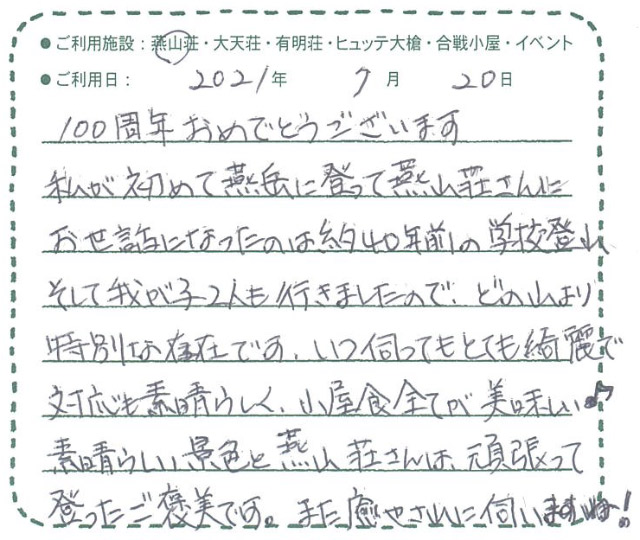 ● ご利用施設：燕山荘・大天荘・有明荘・ヒュッテ大槍・合戦小屋・イベント
● ご利用日： 2021年 7月 20日
100周年おめでとうございます
私が初めて燕岳に登って燕山荘さんに
お世話になったのは約40年前の学校登山
そして我が子2人も行きましたので、どの山より
特別な存在です。いつ伺ってもとても綺麗で
対応も素晴らしく、小屋食全てが美味しい♪
素晴らしい景色と燕山荘さんは、頑張って
登ったご褒美です。また癒やされに伺いますね！